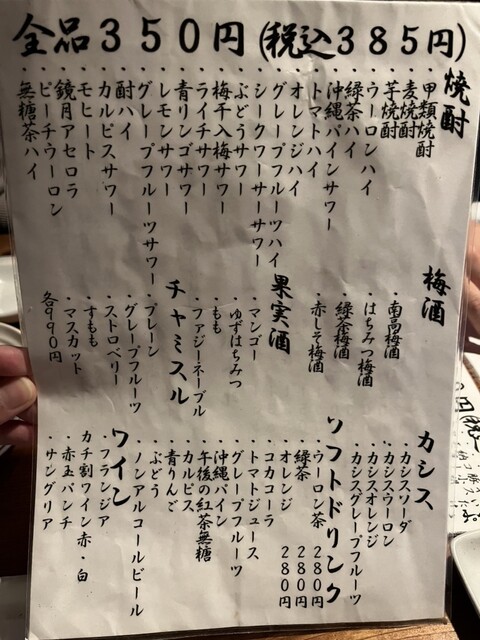 全品３５０円(税込３８５円)
焼酎
・甲類焼酎
・麦焼酎
・芋焼酎
・ウーロンハイ
・緑茶ハイ
・沖縄パインサワー
・トマトハイ
・オレンジハイ
・グレープフルーツハイ
・シークワーサーサワー
・ぶどうサワー
・梅干入梅サワー
・ライチサワー
・青リンゴサワー
・レモンサワー
・グレープフルーツサワー
・酎ハイ
・カルピスサワー
・モヒート
・鏡月アセロラ
・ピーチウーロン
・無糖茶ハイ
梅酒
・南高梅酒
・はちみつ梅酒
・緑茶梅酒
・赤しそ梅酒
果実酒
・マンゴー
・ゆずはちみつ
・もも
・ファジーネーブル
チャミスル
・プレーン
・グレープフルーツ
・ストロベリー
・すもも
・マスカット
各９９０円
カシス
・カシスソーダ
・カシスウーロン
・カシスオレンジ
・カシスグレープフルーツ
ソフトドリンク
・ウーロン茶 ２８０円
・緑茶 ２８０円
・オレンジ ２８０円
・コカコーラ
・トマトジュース
・グレープフルーツ
・沖縄パイン
・午後の紅茶無糖
・青りんご
・カルピス
・ぶどう
・ノンアルコールビール
ワイン
・フランジア
カチ割ワイン赤・白
・赤玉パンチ
・サングリア